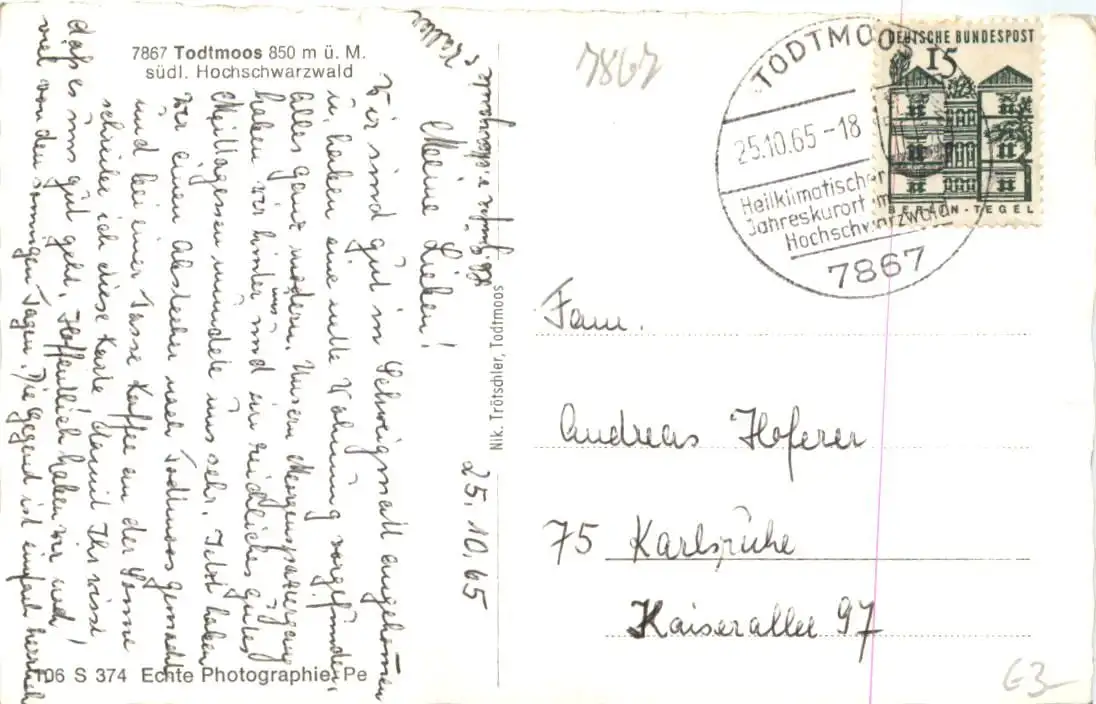 7867 Todtmoos 850 m ü. M.
südl. Hochschwarzwald
25.10.65
Meine Lieben!
Wir sind gut in Schweigmatt angekommen
u. haben eine nette Wohnung vorgefunden,
alles ganz modern. Unsern Morgenspaziergang
haben wir hinter uns und ein reichliches gutes
Mittagessen mundete uns sehr. Jetzt haben
wir einen Abstecher nach Todtmoos gemacht
und bei einer Tasse Kaffee an der Sonne
schreibe ich diese Karte damit Ihr wisst
daß es uns gut geht. Hoffentlich haben wir noch
viel von den sonnigen Tagen. Die Gegend ist einfach herrlich!
706 S 374 Echte Photographie Pe
Nik. Trötschler, Todtmoos
7867
TODTMOOS
25.10.65-18
Heilklimatischer
Jahreskurort im
Hochschwarzwald
7867
DEUTSCHE BUNDESPOST
15
BERLIN-TEGEL
Fam.
Andreas Hoferer
75 Karlsruhe
Kaiserallee 97
€3